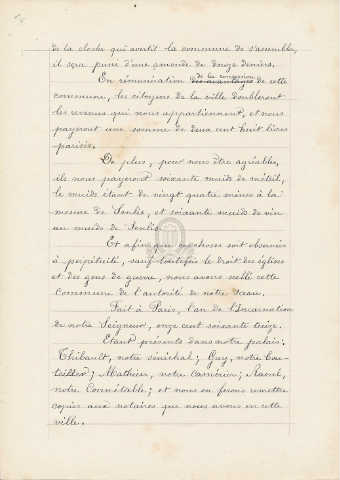 de la cloche qui avertit la commune de s'assembler,
il sera puni d'une amende de douze deniers.
En rémunération de la concession de cette
commune, les citoyens de la ville doubleront
les revenus qui nous appartiennent, et nous
payeront une somme de deux cent huit livres
parisis.
De plus, pour nous être agréables,
ils nous payeront soixante muids de méteil,
le muids étant de vingt quatre mines à la
mesure de Senlis, et soixante muids de vin
au muids de Senlis.
Et afin que ces choses soit observées
à perpétuité, sauf toutefois le droit des églises
et des gens de guerre, nous avons scellé cette
Commune de l'autorité de notre sceau.
Fait à Paris, l'an de l'Incarnation
de notre Seigneur, onze cent soixante treize.
Etant présents dans notre palais:
Thibault, notre sénéchal; Guy, notre bou-
teiller; Mathieu, notre Camérier; Raoul,
notre Connétable; et nous en ferons remettre
copies aux notaires que nous avons en cette
ville.